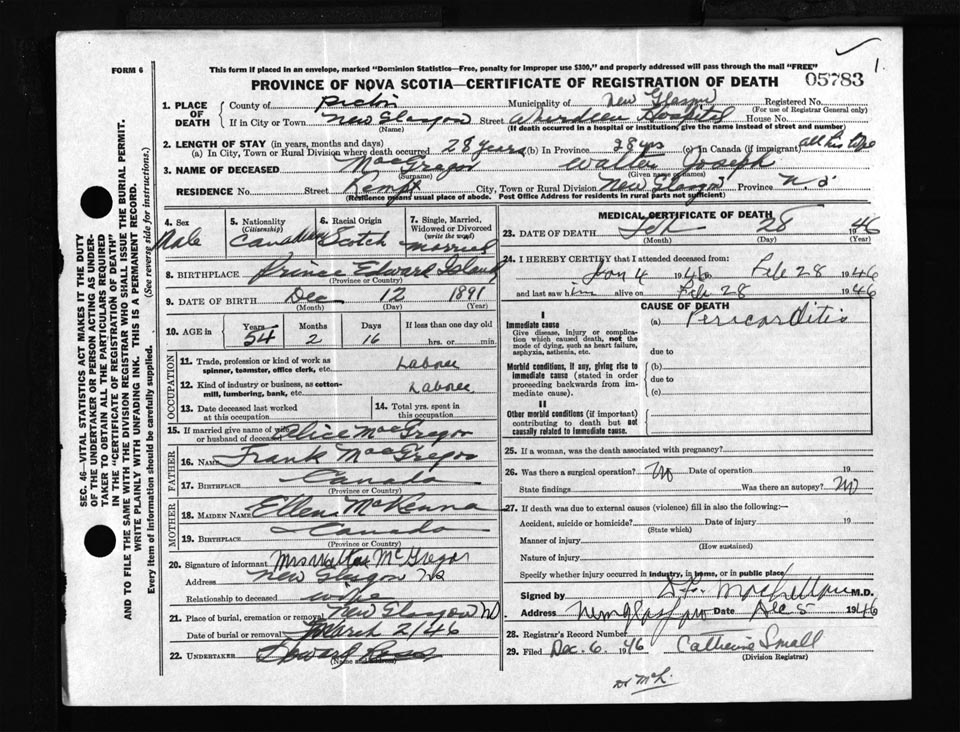 FORM 6
This form if placed in an envelope, marked "Dominion Statistics—Free, penalty for improper use $300," and properly addressed will pass through the mail "FREE"
PROVINCE OF NOVA SCOTIA—CERTIFICATE OF REGISTRATION OF DEATH
05783
1.
1. PLACE OF DEATH
County of Pictou Municipality of New Glasgow Registered No.
(For use of Registrar General only)
If in City or Town New Glasgow Street Aberdeen Hospital House No.
(Name) (If death occurred in a hospital or institution, give the name instead of street and number)
2. LENGTH OF STAY (in years, months and days)
(a) In City, Town or Rural Division where death occurred 28 years (b) In Province 28 yrs (c) In Canada (if immigrant) all his life
3. NAME OF DECEASED MacGregor Walter Joseph
(Surname) (Given names)
RESIDENCE No. Street Kempt City, Town or Rural Division New Glasgow Province N.S
(Residence means usual place of abode. Post Office Address for residents in rural parts not sufficient)
4. Sex
Male
5. Nationality (Citizenship)
Canadian
6. Racial Origin
Scotch
7. Single, Married, Widowed or Divorced (write the word)
Married
8. BIRTHPLACE Prince Edward Island
(Province or Country)
9. DATE OF BIRTH Dec 12 1891
(Month) (Day) (Year)
10. AGE in
Years Months Days If less than one day old
54 2 16 hrs. or min.
OCCUPATION
11. Trade, profession or kind of work as spinner, teamster, office clerk, etc. Laborer
12. Kind of industry or business, as cotton-mill, lumbering, bank, etc. Laborer
13. Date deceased last worked at this occupation
14. Total yrs. spent in this occupation
15. If married give name of wife or husband of deceased Alice MacGregor
FATHER
16. NAME Frank MacGregor
17. BIRTHPLACE Canada
(Province or Country)
MOTHER
18. MAIDEN NAME Ellen McKenna
19. BIRTHPLACE Canada
(Province or Country)
20. Signature of informant Mrs Walter McGregor
Address New Glasgow NS
Relationship to deceased wife
21. Place of burial, cremation or removal New Glasgow NS
Date of burial or removal March 2/46
22. UNDERTAKER
(Name and address)
MEDICAL CERTIFICATE OF DEATH
23. DATE OF DEATH Feb 28 1946
(Month) (Day) (Year)
24. I HEREBY CERTIFY that I attended deceased from:
Jan 4 1946 to Feb 28 1946
and last saw him alive on Feb 28 1946
CAUSE OF DEATH
I
Immediate cause
Give disease, injury or complication which caused death, not the mode of dying, such as heart failure, asphyxia, asthenia, etc.
(a) Pericarditis
due to
Morbid conditions, if any, giving rise to immediate cause (stated in order proceeding backwards from immediate cause).
(b)
due to
(c)
II
Other morbid conditions (if important) contributing to death but not causally related to immediate cause.
25. If a woman, was the death associated with pregnancy?
26. Was there a surgical operation? No Date of operation 19
State findings Was there an autopsy? No
27. If death was due to external causes (violence) fill in also the following:—
Accident, suicide or homicide? Date of injury 19
(State which)
Manner of injury
(How sustained)
Nature of injury
Specify whether injury occurred in industry, in home, or in public place
Signed by M.D.
Address New Glasgow Date Dec 5 1946
28. Registrar's Record Number
29. Filed Dec. 6 1946 Catherine Small
(Division Registrar)
Dr McL.
SEC. 46—VITAL STATISTICS ACT MAKES IT THE DUTY
OF THE UNDERTAKER OR PERSON ACTING AS UNDER-
TAKER TO OBTAIN ALL THE PARTICULARS REQUIRED
IN THE "CERTIFICATE OF REGISTRATION OF DEATH"
AND TO FILE THE SAME WITH THE DIVISION REGISTRAR WHO SHALL ISSUE THE BURIAL PERMIT.
WRITE PLAINLY WITH UNFADING INK. THIS IS A PERMANENT RECORD.
Every item of information should be carefully supplied. (See reverse side for instructions.)